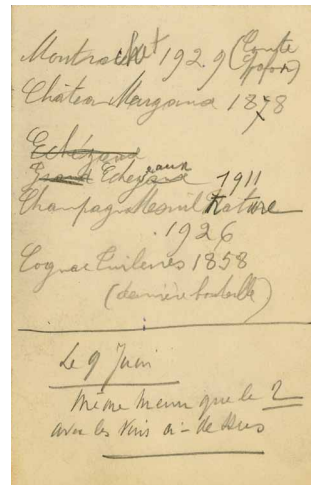 Montrachet 1929 (Comte Lafon)
Château Margaux 1878
Echézeaux
Grand Echezeaux 1911
Champagne Mesnil Nature
1926
Cognac 1858
(dernière bouteille)
Le 9 Juin
Même menu que le 2
avec les vins ci-dessus